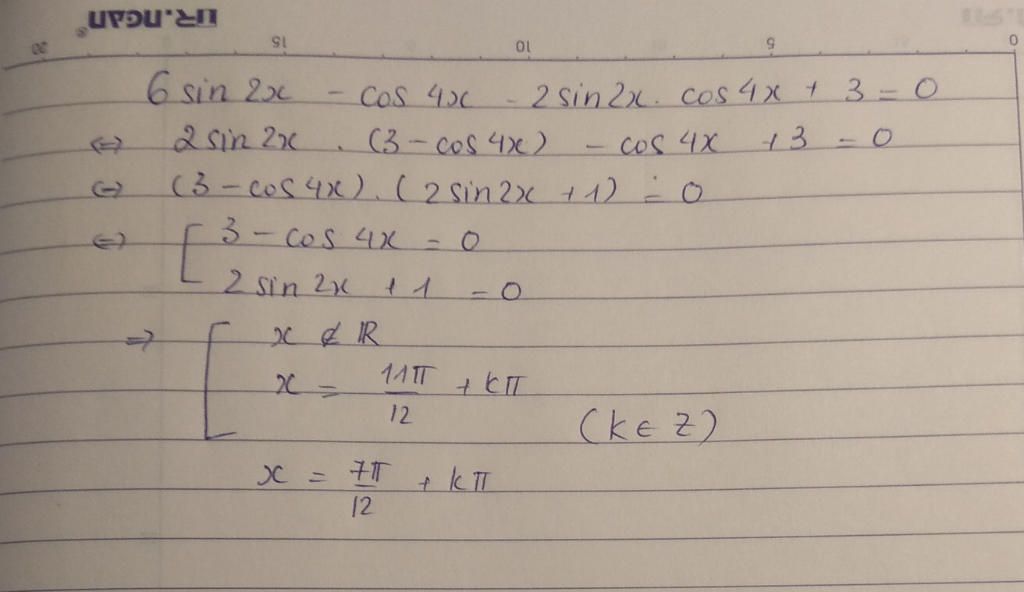 UR.NGAN®
0 5 10 15 20
6 sin 2x - cos 4x - 2 sin 2x. cos 4x + 3 = 0
⇔ 2 sin 2x . (3 - cos 4x) - cos 4x + 3 = 0
⇔ (3 - cos 4x). (2 sin 2x + 1) = 0
⇔ [ 3 - cos 4x = 0
2 sin 2x + 1 = 0
⇒ [ x ∉ ℝ
x = 11π/12 + kπ
(k ∈ Z)
x = 7π/12 + kπ